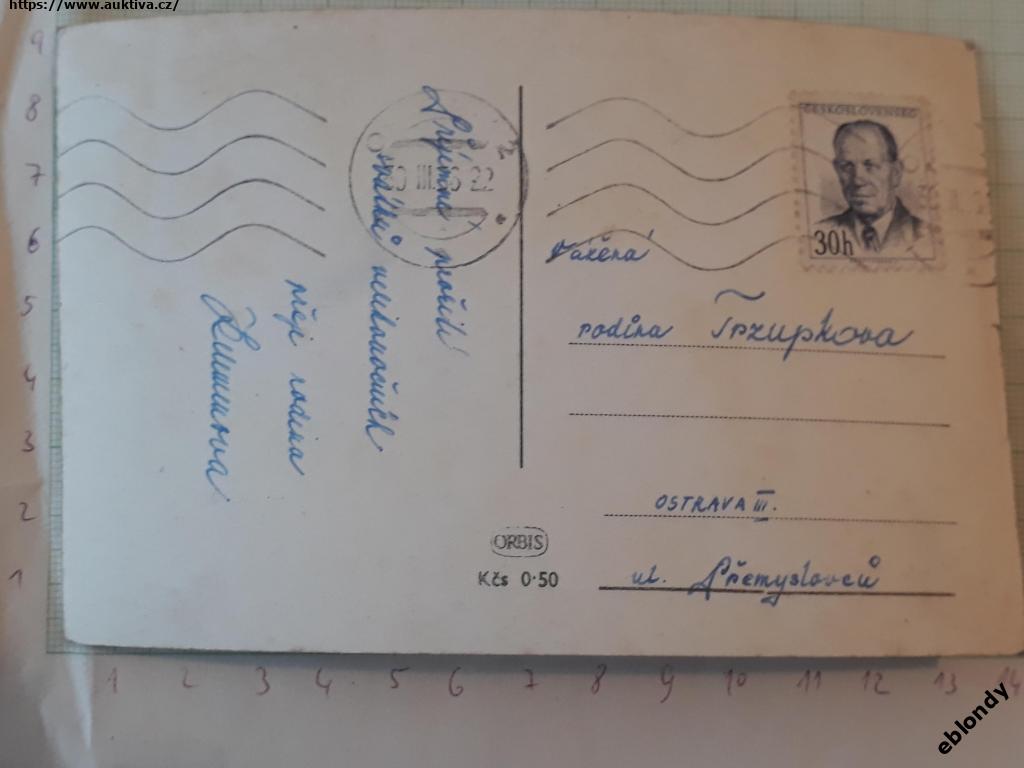 https://www.auktiva.cz/
Příjemné prožití
svátků velikonočních
přeje rodina
ČESKOSLOVENSKO
30h
Vážená
rodina Trzupkova
OSTRAVA III.
ul. Přemyslovců
ORBIS
Kčs 0·50
9
8
7
6
5
4
3
2
1
1 2 3 4 5 6 7 8 9 10 11 12 13 14
eblondy